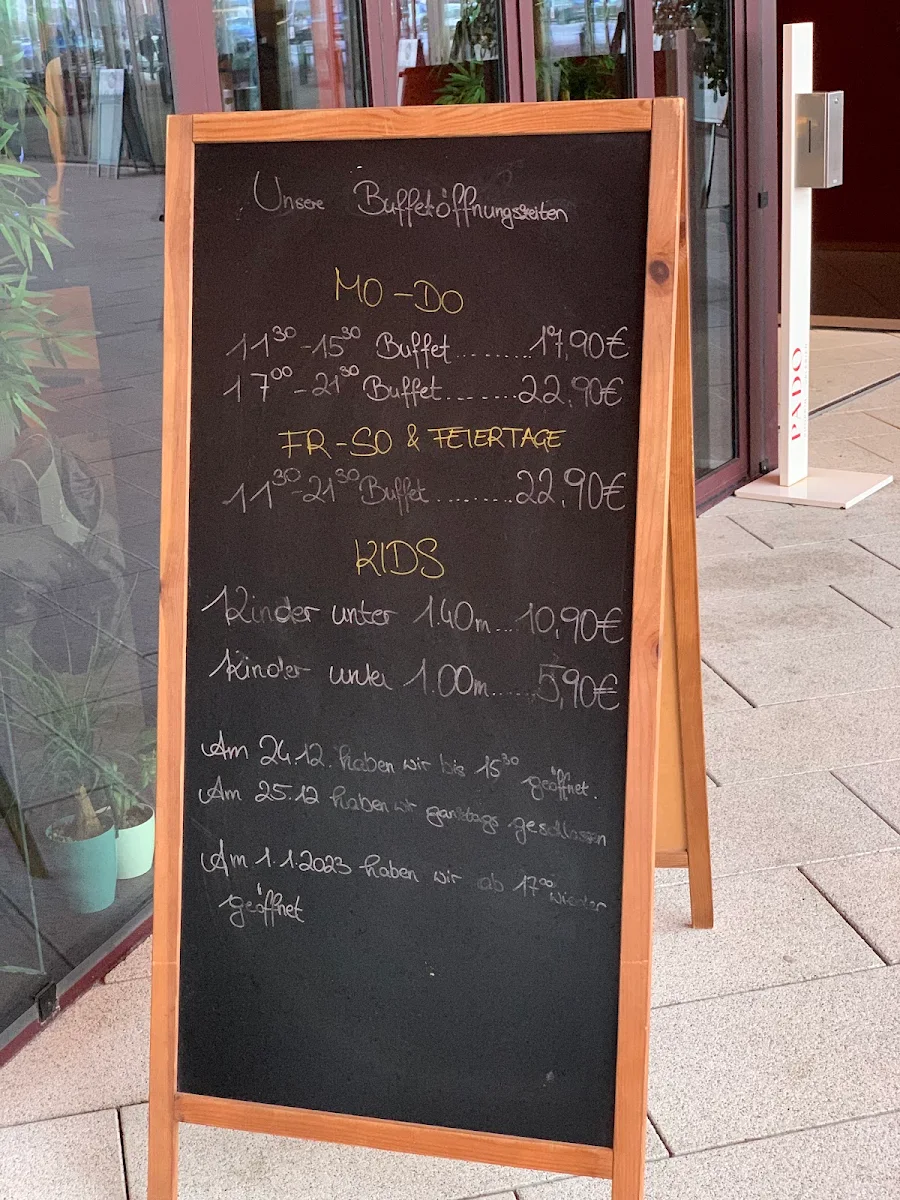 Unsere Buffetöffnungszeiten
MO-DO
11³⁰-15³⁰ Buffet.........17,90€
17⁰⁰-21³⁰ Buffet.........22,90€
FR-SO & FEIERTAGE
11³⁰-21³⁰ Buffet.........22,90€
KIDS
Kinder unter 1.40m...10,90€
Kinder unter 1.00m......5,90€
Am 24.12. haben wir bis 15³⁰ geöffnet.
Am 25.12 haben wir ganztags geschlossen
Am 1.1.2023 haben wir ab 17⁰⁰ wieder
geöffnet
PADO